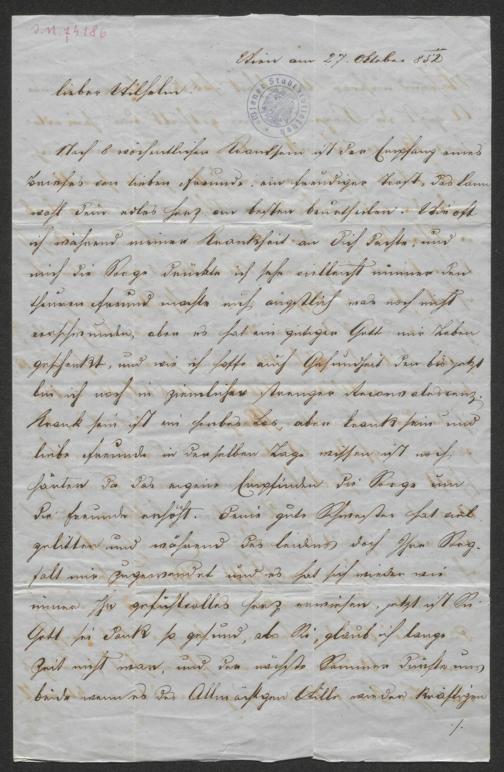 J.N. 74186
Wien am 27. Oktober 852
Wiener Stadtbibliothek
lieber Wilhelm
Nach 8 wöchentlichen Kranksein ist der Empfang eines
Briefes von lieben Freunde, ein freudiger Trost, das kann
wohl Dein edles Herz am besten beurtheilen. Wie oft
ich während meiner Krankheit an Dich dachte, und
mich die Sorge drückte ich sehe vielleicht nimmer den
theuren Freund machte mich ängstlich was noch nicht
verschwunden, aber es hat ein gütiger Gott mir Leben
geschenkt, und wie ich hoffe auch Gesundheit den bis jetzt
bin ich noch in ziemlicher strenger Reconvalescenz.
Krank sein ist ein herbes Los, aber krank sein und
liebe Freunde in derselben Lage wissen ist noch
härter da das eigene Empfinden die Sorge um
die Freunde erhöht. Deine gute Schwester hat viel
gelitten und während des leidens doch Ihre Sorg-
falt mir zugewendet und es hat sich wieder wie
immer Ihr gefühlvolles Herz erwiesen, jetzt ist Sie
Gott sei Dank so gesund, als Sie, glaub ich lange
Zeit nicht war, und der nächste Sommer dürfte uns
beide wenn es des Allmächtigen Wille wieder kräftigen
./.